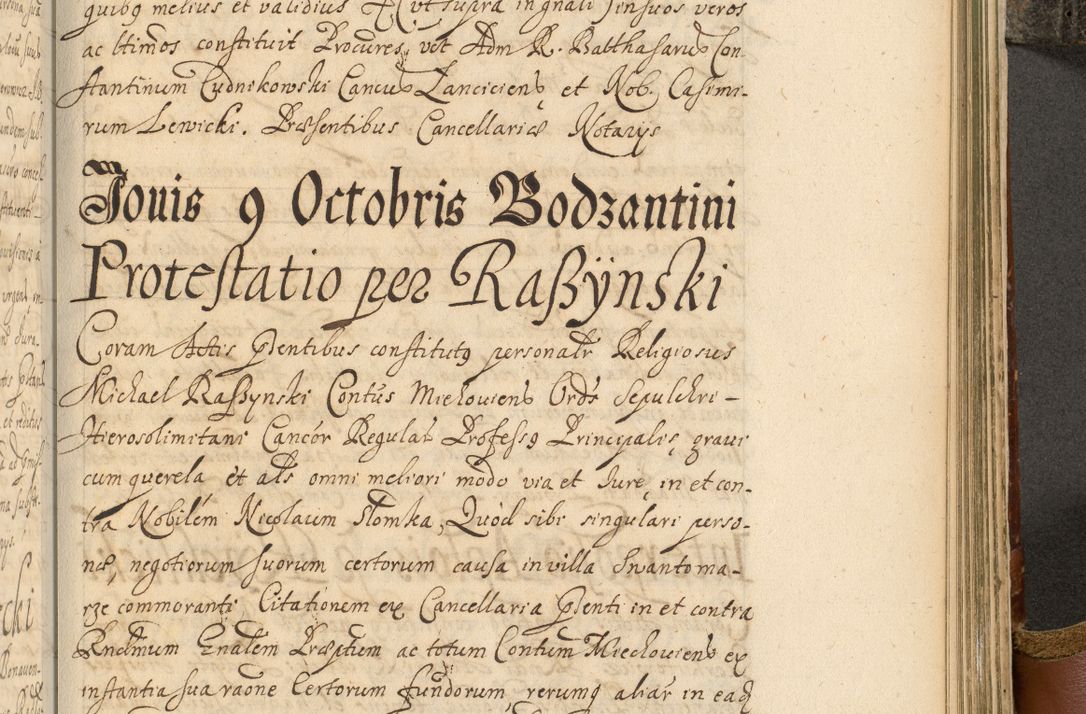 quibꝯ melius et validius &c. vt supra in gnali Jensuos veros
ac ltimos constituit Procures, vet Adm R. Balthasarus Con-
stantinum Cudnikowski Cancus Lanciciens et Nob. Casimi-
rum Lewicki. Præsentibus Cancellariæ Notarÿs
Jouis 9 Octobris Bodzantini
Protestatio per Raßÿnski
Coram Actis pñtibus constitutꝯ personalr Religiosus
Michael Raßynski Contus Miechouiens Ords Sepulchri-
Hierosolimitani Cancor Regular Professꝯ Principalis, graui
cum querela et als omni meliori modo via et Jure, in et con-
tra Nobilem Nicolaum Słomka, Quod sibi singulari perso-
næ, negotiorum suorum certorum causa in villa Swantoma-
rze commoranti, Citationem ex Cancellaria pñti in et contra
Rndmum Gnalem Præptum ac totum Contum Miechouiens ex
instantia sua raone Certorum fundorum, rerumq aliar in ead